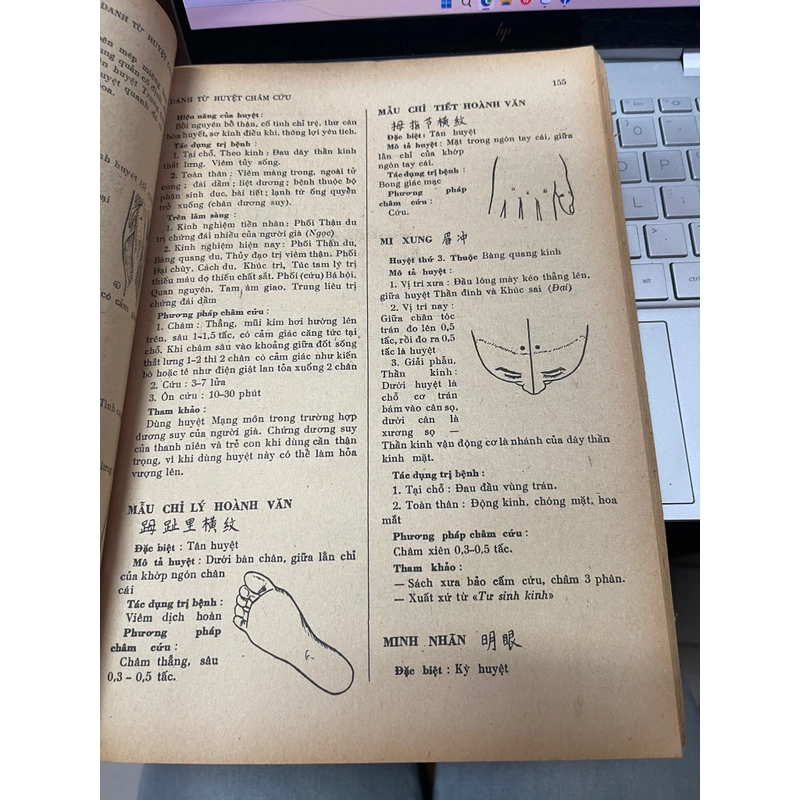 DANH TỪ HUYỆT CHÂM CỨU
155
Hiệu năng của huyệt :
Bồi nguyên bổ thận, cố tinh chỉ trệ, thư cân
hòa huyết, sơ kinh điều khí, thông lợi yêu tích.
Tác dụng trị bệnh :
1. Tại chỗ, Theo kinh : Đau dây thần kinh
thắt lưng. Viêm tủy sống.
2. Toàn thân : Viêm màng trong, ngoài tử
cung ; đái dầm ; liệt dương ; bệnh thuộc bộ
phận sinh dục, bài tiết ; lạnh từ ống quyển
trở xuống (chân dương suy).
Trên lâm sàng :
1. Kinh nghiệm tiền nhân : Phối Thận du
trị chứng đái nhiều của người già (Ngọc)
2. Kinh nghiệm hiện nay : Phối Thận du,
Bàng quang du, Thủy đạo trị viêm thận. Phối
Đại chùy, Cách du, Khúc trì, Túc tam lý trị
thiếu máu do thiếu chất sắt. Phối (cứu) Bá hội,
Quan nguyên, Tam âm giao, Trung liêu trị
chứng đái dầm
Phương pháp châm cứu :
1. Châm : Thẳng, mũi kim hơi hướng lên
trên, sâu 1–1,5 tấc, có cảm giác căng tức tại
chỗ. Khi châm sâu vào khoảng giữa đốt sống
thắt lưng 1-2 thì 2 chân có cảm giác như kiến
bò hoặc tê như điện giật lan tỏa xuống 2 chân
2. Cứu : 3–7 lửa
3. Ôn cứu : 10–30 phút
Tham khảo :
Dùng huyệt Mạng môn trong trường hợp
dương suy của người già. Chứng dương suy
của thanh niên và trẻ con khi dùng cần thận
trọng, vì khi dùng huyệt này có thể làm hỏa
vượng lên.
MẪU CHỈ LÝ HOÀNH VĂN
姆趾里横紋
Đặc biệt : Tân huyệt
Mô tả huyệt : Dưới bàn chân, giữa lằn chỉ
của khớp ngón chân
cái
Tác dụng trị bệnh :
Viêm dịch hoàn
Phương pháp
châm cứu :
Châm thẳng, sâu
0,3 – 0,5 tấc.
MẪU CHỈ TIẾT HOÀNH VĂN
拇指节横紋
Đặc biệt : Tân huyệt
Mô tả huyệt : Mặt trong ngón tay cái, giữa
lằn chỉ của khớp
ngón tay cái.
Tác dụng trị bệnh :
Bong giác mạc
Phương pháp
châm cứu :
Cứu.
MI XUNG 眉冲
Huyệt thứ 3. Thuộc Bàng quang kinh
Mô tả huyệt :
1. Vị trí xưa : Đầu lông mày kéo thẳng lên,
giữa huyệt Thần đình và Khúc sai (Đại)
2. Vị trí nay :
Giữa chân tóc
trán đo lên 0,5
tấc, rồi đo ra 0,5
tấc là huyệt
3. Giải phẫu,
Thần kinh :
Dưới huyệt là
chỗ cơ trán
bám vào cân sọ,
dưới cân là
xương sọ —
Thần kinh vận động cơ là nhánh của dây thần
kinh mặt.
Tác dụng trị bệnh :
1. Tại chỗ : Đau đầu vùng trán.
2. Toàn thân : Động kinh, chóng mặt, hoa
mắt
Phương pháp châm cứu :
Châm xiên 0,3–0,5 tấc.
Tham khảo :
— Sách xưa bảo cấm cứu, châm 3 phân.
— Xuất xứ từ «Tư sinh kinh»
MINH NHÃN 明眼
Đặc biệt : Kỳ huyệt
hp